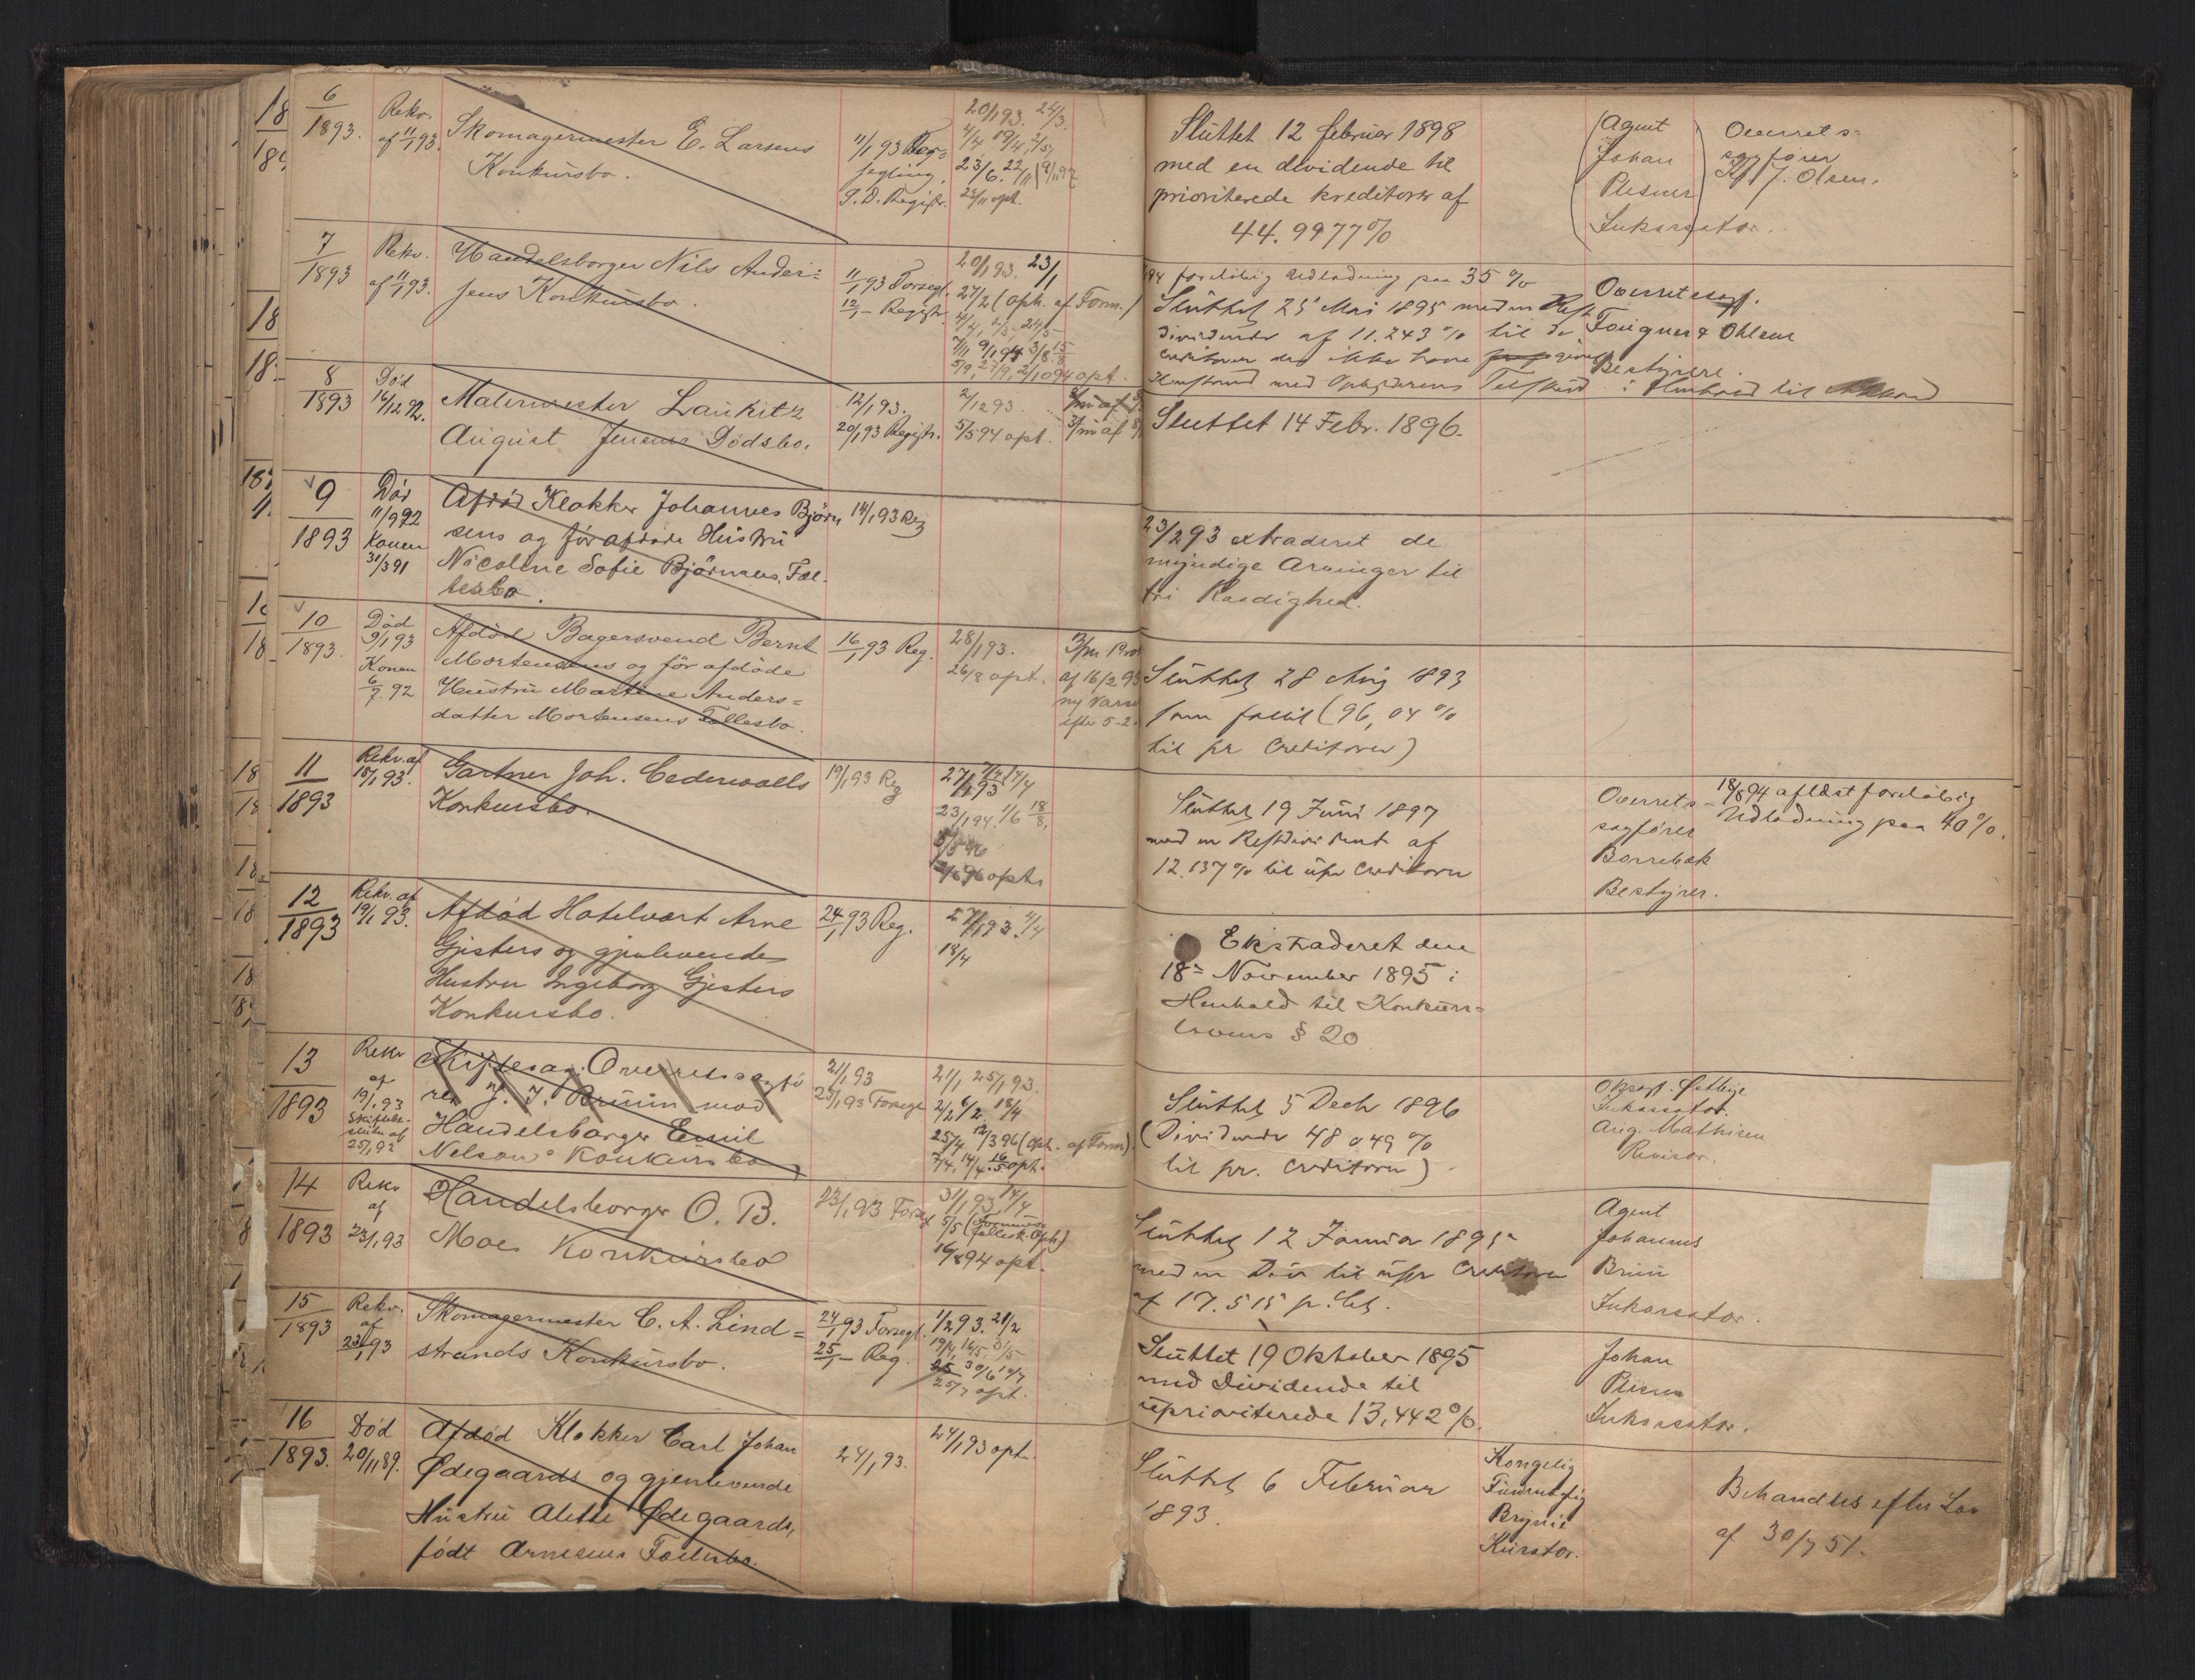 6
1893.
Rekv.
af 11/1 93.
Skomagermester E. Larsens
Konkursbo.
11/1 93 For=
segling.
S. D. Registr.
20/1 93. 24/3.
4/4 19/4, 2/5,
23/6. 22/11
23/11 opt.
Sluttet 12 februar 1898
med en dividende til
prioriterede kreditorer af
44.9977%
Agent
Johan
Plesner
Inkassator.
Overrets=
sagfører
J. Olsen.
7
1893
Rekv.
af 11/1 93.
Handelsborger Nils Ander=
sens Konkursbo.
11/1 93 Forsegl.
12/1 – Registr.
20/1 93. 23/1
27/2 (oph. af Form.)
4/4, 2/5 24/5
7/11 9/1 94 3/8. 15/8
5/9, 27/9, 2/10 94 opt.
foreløbig Udlodning paa 35 %
Sluttet 25 Mai 1895 med en Rest
dividende af 11.243 % til de
creditorer der ikke have
Overretssagf.
Fougner & Ohlsen
Bestyrere.
8
1893
Død
16/12 92.
Malermester Lauritz
August Jensens Dødsbo.
12/1 93.
20/1 93 Registr.
2/12 93.
5/5 94 opt.
Sluttet 14 Febr. 1896.
9
1893
Død
11/9 92
Konen
31/3 91
Afdød Klokker Johannes Bjørn
sens og før afdøde Hustru
Nicoline Sofie Bjørnsens Fæl-
lesbo.
14/1 93 Reg
23/2 93 extraderet de
myndige Arvinger til
fri Raadighed.
10
1893.
Død
9/1 93
Konen
6/7. 92
Afdød Bagersvend Bernt
Mortensens og før afdøde
Hustru Martine Anders=
datter Mortensens Fællesbo.
16/1 93 Reg.
28/1 93.
26/8 opt.
3/m Pro
af 16/2 93
ny Varsel
efter 5-2.
Sluttet 28 Aug 1893
som fallit (96,04 %
til pr Creditorer)
11
1893
Rekv. af
18/1 93.
Gartner Joh. Cederwalls
Konkursbo.
19/1 93 Reg
27/1 93 14/4
23/1 94. 1/6 18/8,
96 opt.
Sluttet 19 Juni 1897
med en Restdividende af
12.137 % til upr Creditorer
Overrets-
sagfører
Borrebæk
Bestyrer.
18/8 94 aflæst foreløbig
Udlodning paa 40 %.
12
1893
Rekv. af
19/1 93.
Afdød Hotelvært Arne
Gjesters og gjenlevende
Hustru Ingeborg Gjesters
Konkursbo.
24/1 93 Reg.
27/1 93. 4/4
18/4
Ekstraderet den
18de November 1895 i
Henhold til Konkurs=
lovens § 20
13
1893
Rekv
af
19/1 93
Skiftebe-
slutn af
25/1 93
Skiftesag: Overretssagfø
rer J. J. Bruun mod
Handelsborger Emil
Nelsons Konkursbo
21/1 93
25/1 93 Forsegl
21/1, 25/1 93.
2/2 6/2. 18/4
25/4 12/3 96 (oph. af Form)
7/4, 14/4. 16/5 opt.
Sluttet 5 Decb 1896
(Dividende 48,049 %
til pr. Creditorer)
Østbye
Inkassator.
Aug. Mathisen
Revisor.
14
1893
Rekv
af
23/1 93
Handelsborger O. B.
Moes Konkursbo
23/1 93 Forsegl
31/1 93 14/4
5/5 (Formues
fællesk. Oph)
94 opt.
Sluttet 12 Januar 1895
med en Div til upr Creditorer
af 17.515 p. Ct.
Agent
Johannes
Bruu
Inkassator.
15
1893
Rekv.
af
23/1 93
Skomagermester C. A. Lind=
strands Konkursbo.
24/1 93 Forsegl.
25/1 – Reg.
1/2 93. 21/2
19/4, 16/5, 31/5
30/6 10/7
25/7 opt.
Sluttet 19 Oktober 1895
med Dividende til
uprioriterede 13,442 %.
Johan
Plesner
Inkassator.
16
1893.
Død
20/11 89.
Afdød Klokker Carl Johan
Ødegaards og gjenlevende
Hustru Alette Ødegaards,
født Arnesens Fællesbo.
24/1 93.
24/1 93 opt.
Sluttet 6 Februar
1893.
Kongelig
Fuldmægtig
Brynie
Kurator.
Behandles efter Lov
af 30/7 51.